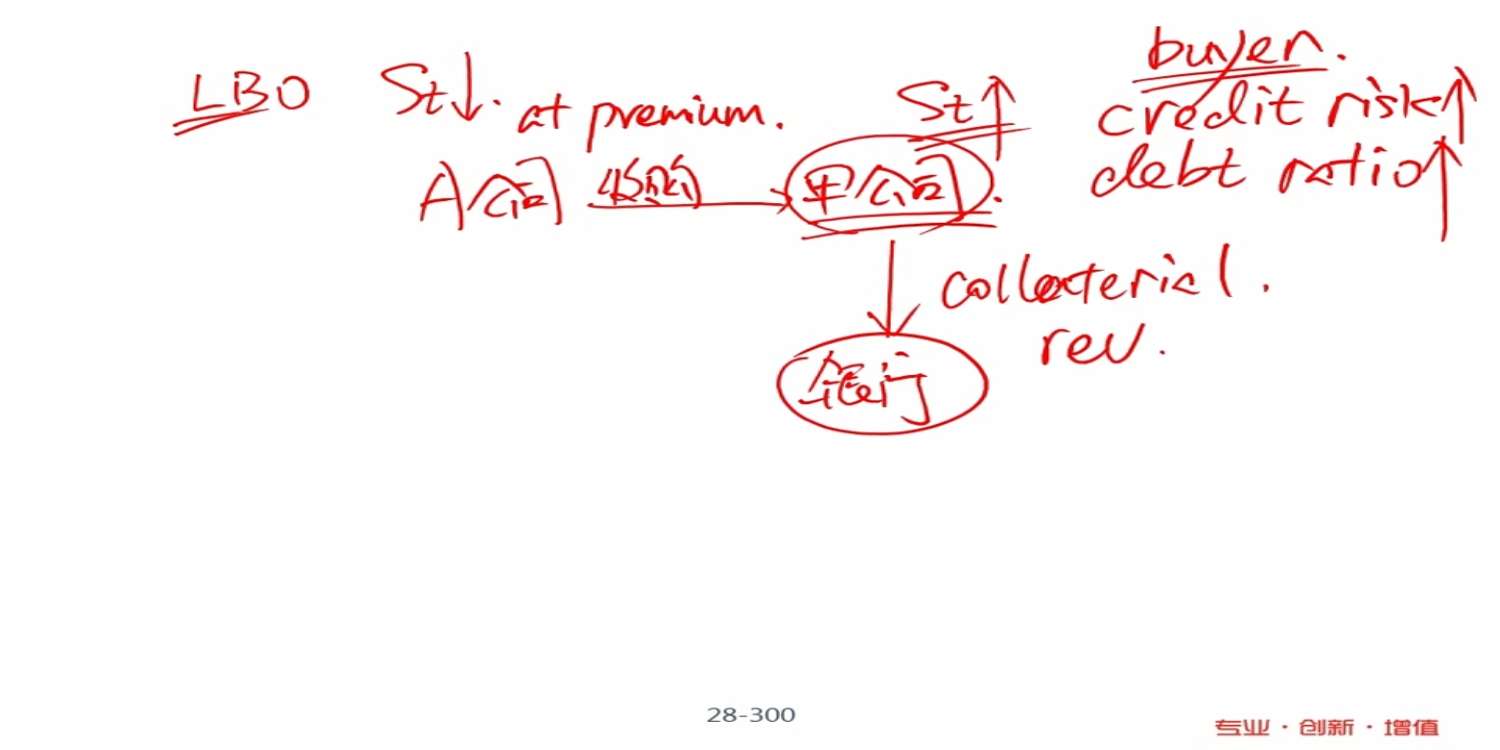 LBO St↓. at premium. St↑ buyer.
credit risk↑
A公司 收购 → 甲公司. debt ratio↑
collaterial.
rev.
银行
28-300
专业·创新·增值